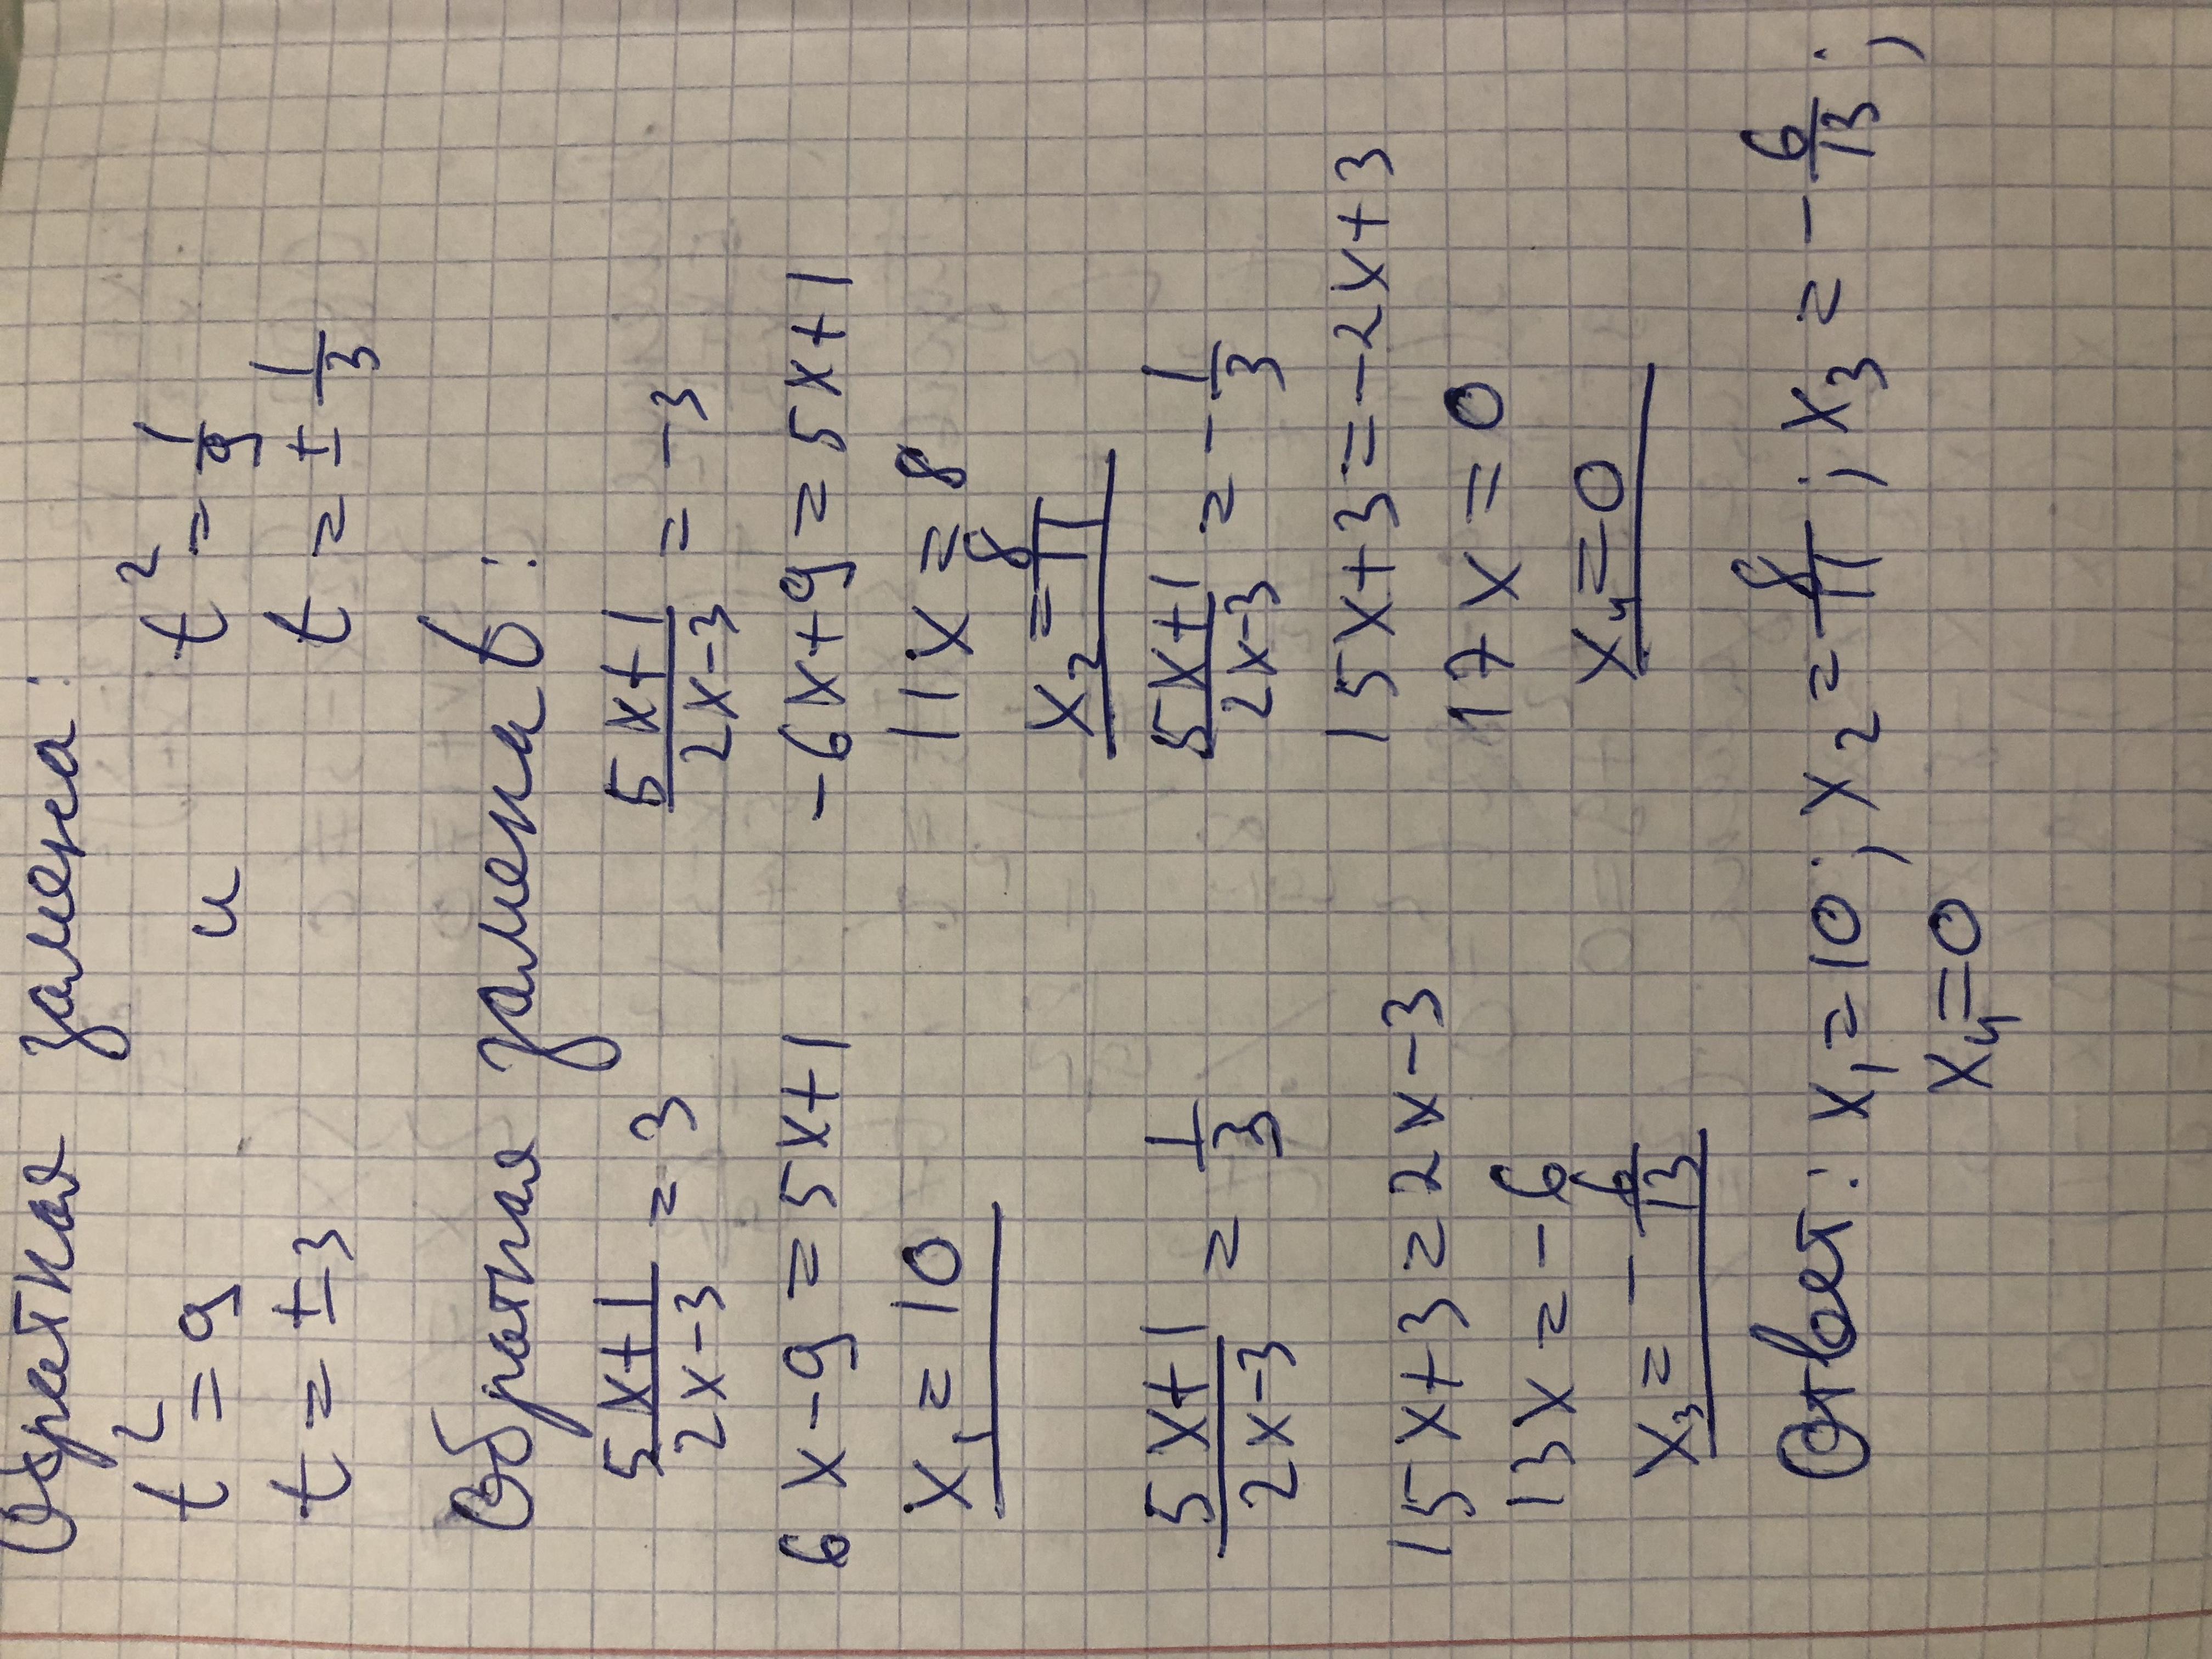 Обратная замена:
t² = 9 и t² = 1/9
t = ±3 t = ± 1/3
Обратная замена в:
(5x+1)/(2x-3) = 3 (5x+1)/(2x-3) = -3
6x-9 = 5x+1 -6x+9 = 5x+1
x₁ = 10 11x = 8
x₂ = 8/11
(5x+1)/(2x-3) = 1/3 (5x+1)/(2x-3) = -1/3
15x+3 = 2x-3 15x+3 = -2x+3
13x = -6 17x = 0
x₃ = -6/13 x₄ = 0
Ответ: x₁ = 10; x₂ = 8/11; x₃ = -6/13;
x₄ = 0